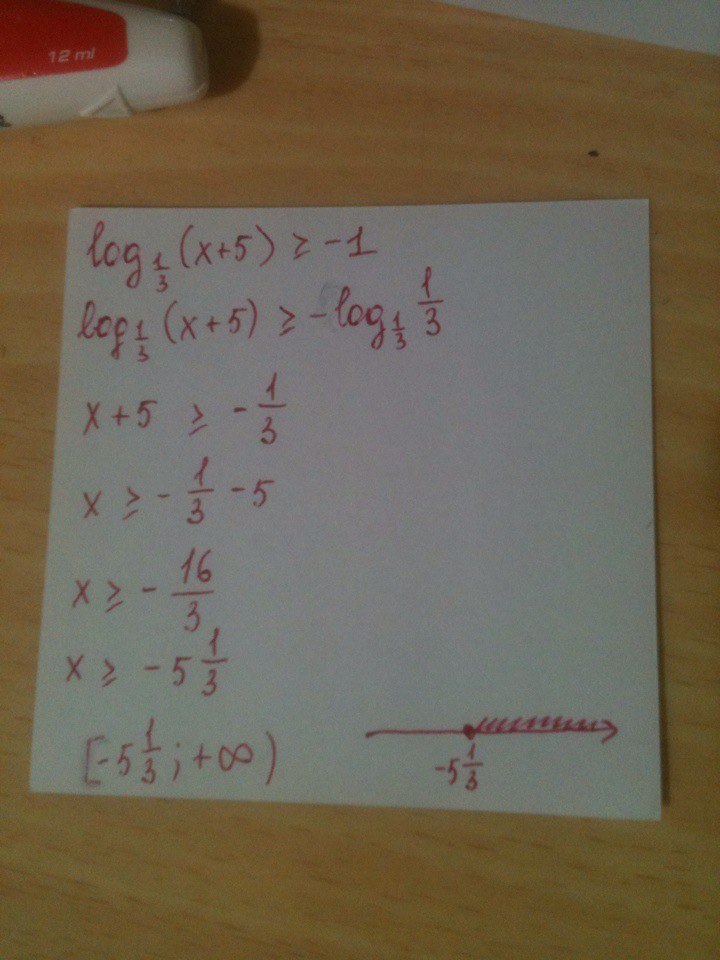 12 ml
log_{1/3} (x+5) ≥ -1
log_{1/3} (x+5) ≥ -log_{1/3} 1/3
x+5 ≥ - 1/3
x ≥ - 1/3 - 5
x ≥ - 16/3
x ≥ -5 1/3
[-5 1/3 ; +∞)
-5 1/3